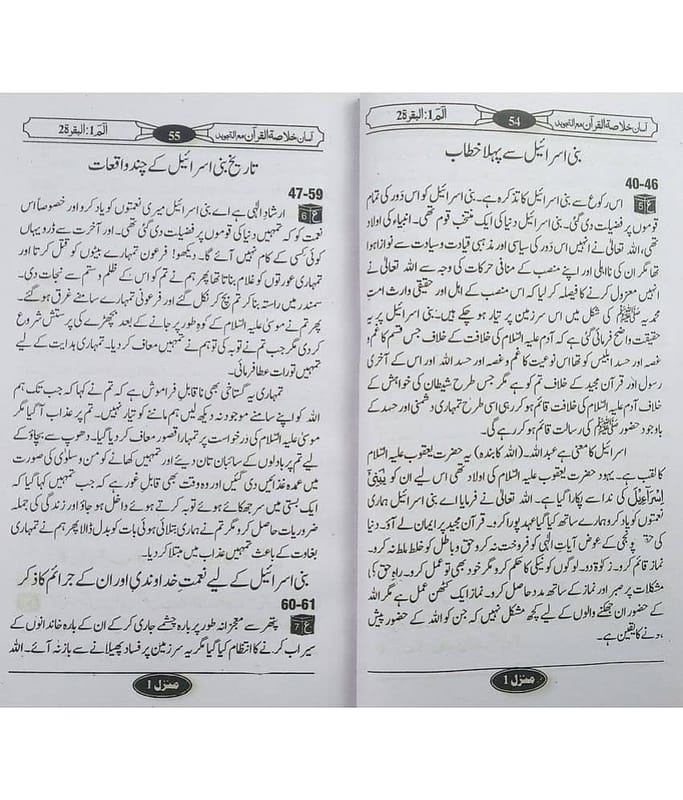 آسان خلاصۃ القرآن مع التجوید 54 الٓمٓ 1: البقرۃ 2
بنی اسرائیل سے پہلا خطاب
40-46
اس رکوع سے بنی اسرائیل کا تذکرہ ہے۔ بنی اسرائیل کو اس دَور کی تمام
قوموں پر فضیلت دی گئی۔ بنی اسرائیل دنیا کی ایک منتخب قوم تھی۔ انبیاء کی اولاد
تھی، اللہ تعالیٰ نے انہیں اس دَور کی سیاسی اور مذہبی قیادت و سیادت سے نوازا ہوا
تھا مگر ان کی نااہلی اور اپنے منصب کے منافی حرکات کی وجہ سے اللہ تعالیٰ نے
انہیں معزول کرنے کا فیصلہ کر لیا کہ اس منصب کے اہل اور حقیقی وارث امتِ
محمدیہ ﷺ کی شکل میں اس سرزمین پر تیار ہو چکے ہیں۔ بنی اسرائیل پر یہ
حقیقت واضح فرمائی گئی ہے کہ آدم علیہ السّلام کی خلافت کے خلاف جس قسم کا غم و
غصہ اور حسد ابلیس کو تھا اس نوعیت کا غم و غصہ اور حسد اللہ اور اس کے آخری
رسول اور قرآن مجید کے خلاف تم کو ہے مگر جس طرح شیطان کی خواہش کے
خلاف آدم علیہ السّلام کی خلافت قائم ہو کر رہی اسی طرح تمہاری دشمنی اور حسد کے
باوجود حضور ﷺ کی رسالت قائم ہو کر رہے گی۔
اسرائیل کا معنی ہے عبد اللہ۔ (اللہ کا بندہ) یہ حضرت یعقوب علیہ السّلام
کا لقب ہے۔ یہود حضرت یعقوب علیہ السّلام کی اولاد تھی اس لیے ان کو یٰبَنِیْۤ
اِسْرَآءِیْلَ کی ندا سے پکارا گیا ہے۔ اللہ تعالیٰ نے فرمایا اے بنی اسرائیل ہماری
نعمتوں کو یاد کرو ہمارے ساتھ کیا گیا عہد پورا کرو۔ قرآن مجید پر ایمان لے آؤ۔ دنیا
کی پونجی کے عوض آیاتِ الٰہی کو فروخت نہ کرو حق و باطل کو خلط ملط نہ کرو۔
نماز قائم کرو۔ زکوٰۃ دو۔ لوگوں کو نیکی کا حکم کرو مگر خود بھی تو عمل کرو۔ راہِ حق کی
مشکلات پر صبر اور نماز کے ساتھ مدد حاصل کرو۔ نماز ایک کٹھن عمل ہے مگر اللہ
کے حضور ان جھکنے والوں کے لیے کچھ مشکل نہیں کہ جن کو اللہ کے حضور پیش
ہونے کا یقین ہے۔
منزل 1
آسان خلاصۃ القرآن مع التجوید 55 الٓمٓ 1: البقرۃ 2
تاریخ بنی اسرائیل کے چند واقعات
47-59
ع 6 ارشادِ الٰہی ہے اے بنی اسرائیل میری نعمتوں کو یاد کرو اور خصوصاً اس
نعمت کو کہ تمہیں دنیا کی قوموں پر فضیلت دی گئی تھی۔ اور آخرت سے ڈرو یہاں
کوئی کسی کے کام نہیں آئے گا۔ دیکھو! فرعون تمہارے بیٹوں کو قتل کرتا اور
تمہاری عورتوں کو غلام بناتا تھا پھر ہم نے تم کو اس کے ظلم و ستم سے نجات دی۔
سمندر میں راستہ بنا کر تم بچ کر نکل گئے اور فرعونی تمہارے سامنے غرق ہو گئے۔
پھر تم نے موسیٰ علیہ السّلام کے کوہِ طور پر جانے کے بعد بچھڑے کی پرستش شروع
کر دی مگر جب تم نے توبہ کی تو ہم نے تمہیں معاف کر دیا۔ تمہاری ہدایت کے لیے
تمہیں تورات عطا فرمائی۔
تمہاری یہ گستاخی بھی ناقابلِ فراموش ہے کہ تم نے کہا کہ جب تک ہم
اللہ کو اپنے سامنے موجود نہ دیکھ لیں ہم ماننے کو تیار نہیں۔ تم پر عذاب آ گیا مگر
موسیٰ علیہ السّلام کی درخواست پر تمہارا قصور معاف کر دیا گیا۔ دھوپ سے بچاؤ کے
لیے تم پر بادلوں کے سائبان تان دیئے اور تمہیں کھانے کو من و سلویٰ کی صورت
میں عمدہ غذائیں دی گئیں اور وہ وقت بھی قابلِ غور ہے کہ جب تمہیں کہا گیا کہ
ایک بستی میں سر جھکائے ہوئے توبہ کرتے ہوئے داخل ہو جاؤ اور زندگی کی جملہ
ضروریات حاصل کرو مگر تم نے ہماری بتلائی ہوئی بات کو بدل ڈالا پھر ہم نے تمہاری
بغاوت کے باعث تمہیں عذاب میں مبتلا کر دیا۔
بنی اسرائیل کے لیے نعمتِ خداوندی اور ان کے جرائم کا ذکر
60-61
ع 7 پتھر سے معجزانہ طور پر بارہ چشمے جاری کر کے ان کے بارہ خاندانوں کے
سیراب کرنے کا انتظام کیا گیا مگر یہ سرزمین پر فساد پھیلانے سے باز نہ آئے۔ اللہ
منزل 1